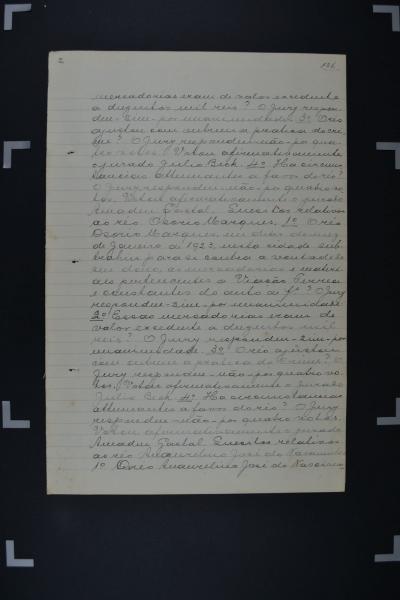 2 136.
mercadorias eram de valor excedente
a duzentos mil reis? O Jury respon-
deu - sim - por unanimidade. 3º O réo
ajustou com outrem a pratica do cri-
me? O Jury respondeu - não - por qua-
tro votos. Votou affirmativamente
o jurado Julio Bick. 4º Ha circums-
tancias attenuantes a favor do réo?
O Jury respondeu - não - por quatro vo-
tos. Votou affirmativamente o jurado
Amadeu Fastal. Quesitos relativos
ao réo Osorio Marques. 1º O réo
Osorio Marques, em dias do mez
de Janeiro de 1923, nesta cidade sub-
trahiu para si contra a vontade de
seu dono, as mercadorias e materi-
aes pertencentes á Viação Ferrea
e constantes do auto de fs? O Jury
respondeu - sim - por unanimidade.
2º Essas mercadorias eram de
valor excedente a duzentos mil
reis? O Jury respondeu - sim - por
unanimidade. 3º O réo ajustou
com outrem a pratica do crime? O
Jury respondeu - não - por quatro vo-
tos. Votou affirmativamente o jurado
Julio Bick. 4º Ha circumstancias
attenuantes a favor do réo? O Jury
respondeu - não - por quatro votos.
Votou affirmativamente o jurado
Amadeu Fastal. Quesitos relativos
ao réo José do Nascimento
1º O réo José do Nascimen-